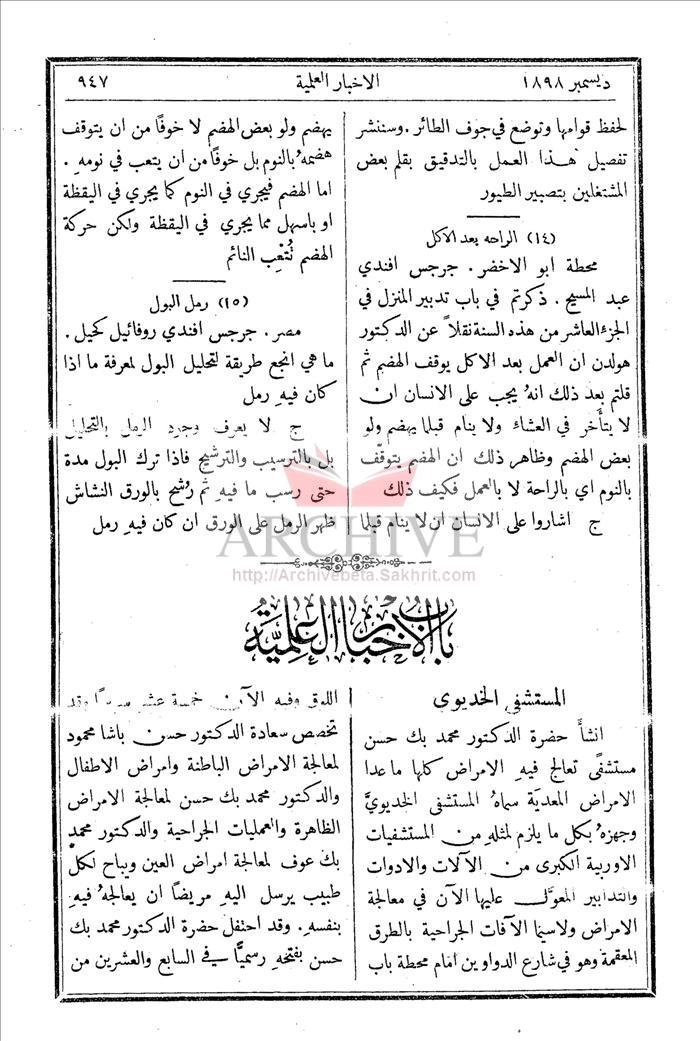 ديسمبر ١٨٩٨
الاخبار العلمية
٩٤٧
لحفظ قوامها وتوضع في جوف الطائر. وسننشر
تفصيل هذا العمل بالتدقيق بقلم بعض
المشتغلين بتصبير الطيور
(١٤) الراحه بعد الاكل
محطة ابو الاخضر. جرجس افندي
عبد المسيح. ذكرتم في باب تدبير المنزل في
الجزء العاشر من هذه السنة نقلاً عن الدكتور
هولدن ان العمل بعد الاكل يوقف الهضم ثم
قلتم بعد ذلك انهُ يجب على الانسان ان
لا يتأخر في العشاء ولا ينام قبلما يهضم ولو
بعض الهضم وظاهر ذلك ان الهضم يتوقف
بالنوم اي بالراحة لا بالعمل فكيف ذلك
ج اشاروا على الانسان ان لا ينام قبلما
يهضم ولو بعض الهضم لا خوفًا من ان يتوقف
هضمهُ بالنوم بل خوفًا من ان يتعب في نومه.
اما الهضم فيجري في النوم كما يجري في اليقظة
او باسهل مما يجري في اليقظة ولكن حركة
الهضم تُتْعِب النائم
(١٥) رمل البول
مصر. جرجس افندي روفائيل كحيل.
ما هي انجع طريقة لتحليل البول لمعرفة ما اذا
كان فيهِ رمل
ج لا يعرف وجود الرمل بالتحليل
بل بالترسيب والترشيح فاذا ترك البول مدة
حتى رسب ما فيهِ ثم رُشح بالورق النشاش
ظهر الرمل على الورق ان كان فيهِ رمل
ARCHIVE
http://Archivebeta.Sakhrit.com
باب الاخبار العلمية
المستشفى الخديوي
انشأ حضرة الدكتور محمد بك حسن
مستشفًى تعالج فيهِ الامراض كلها ما عدا
الامراض المعدية سماهُ المستشفى الخديويَّ
وجهزهُ بكل ما يلزم لمثلهِ من المستشفيات
الاوربية الكبرى من الآلات والادوات
والتدابير المعوَّل عليها الآن في معالجة
الامراض ولاسيما الآفات الجراحية بالطرق
المعقمة وهو في شارع الدواوين امام محطة باب
اللوق وفيه الآن خمسة عشر سريرًا وقد
تخصص سعادة الدكتور حسن باشا محمود
لمعالجة الامراض الباطنة وامراض الاطفال
والدكتور محمد بك حسن لمعالجة الامراض
الظاهرة والعمليات الجراحية والدكتور محمد
بك عوف لمعالجة امراض العين ويباح لكلّ
طبيب يرسل اليهِ مريضًا ان يعالجهُ فيهِ
بنفسهِ. وقد احتفل حضرة الدكتور محمد بك
حسن بفتحهِ رسميًّا في السابع والعشرين من